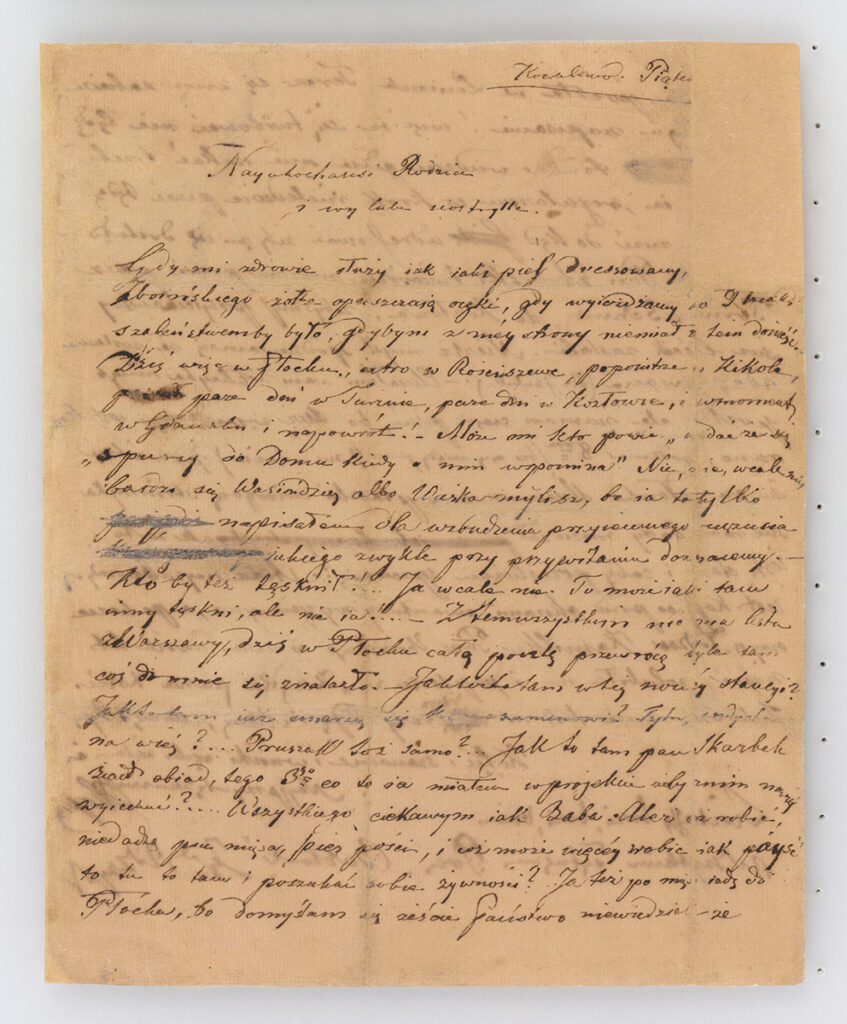 Kowalewo. Piąte
Nayukochańsi Rodzice
i wy lube siostrylle.
Gdy mi zdrowie służy iak iaki pies dressowany,
Zboińskiego żółte opuszczaią oczki, gdy wyieżdżamy do Płocka,
szaleństwemby było, gdybym z méy strony niemiał o tem donieść.
Dziś więc w Płocku, iutro w Rościszewe, poporutrze w Kikole,
parę dni w Turznie, parę dni w Kozłowie, i w moment
w Gdańsku i napowrót! - Może mi kto powie „
„spieszy do Domu kiedy o nim wspomina" Nie, nie, wcale nie,
bardzo się Wasindziey albo Waśka mylisz, bo ia to tylko
napisałem dla wzbudzenia przyiemnego uczucia
iakiego zwykle przy przywitaniu doznaiemy. -
Kto by też tęsknił!... Ja wcale nie. To może iaki tam
inny tęskni, ale nie ia!... - Ztemwszystkim nie ma listu
z Warszawy, dziś w Płocku całą pocztę przewrócę żeby tam
coś do mnie się znalazło. - Jakto to tam w téj nowéy stancyi?
Jak to tam już męczą się do examenów? Tytus wzdycha
na wieś?... Pruszak toż samo?... Jak to tam pan Skarbek
ziadł obiad, tego 3go co to ia miałem w proiekcie zbym z nim na wieś
wyiechać?.... Wszystkiego ciekawym iak Baba. Ale cóż robić,
niedadzą psu mięsa, pies pości, i cóż może więcéy zrobić iak póyść
to tu to tam i poszukać sobie żywności? Ja też po mię iadę do
Płocka, bo domyślam się żeście Państwo niewiedzieli że